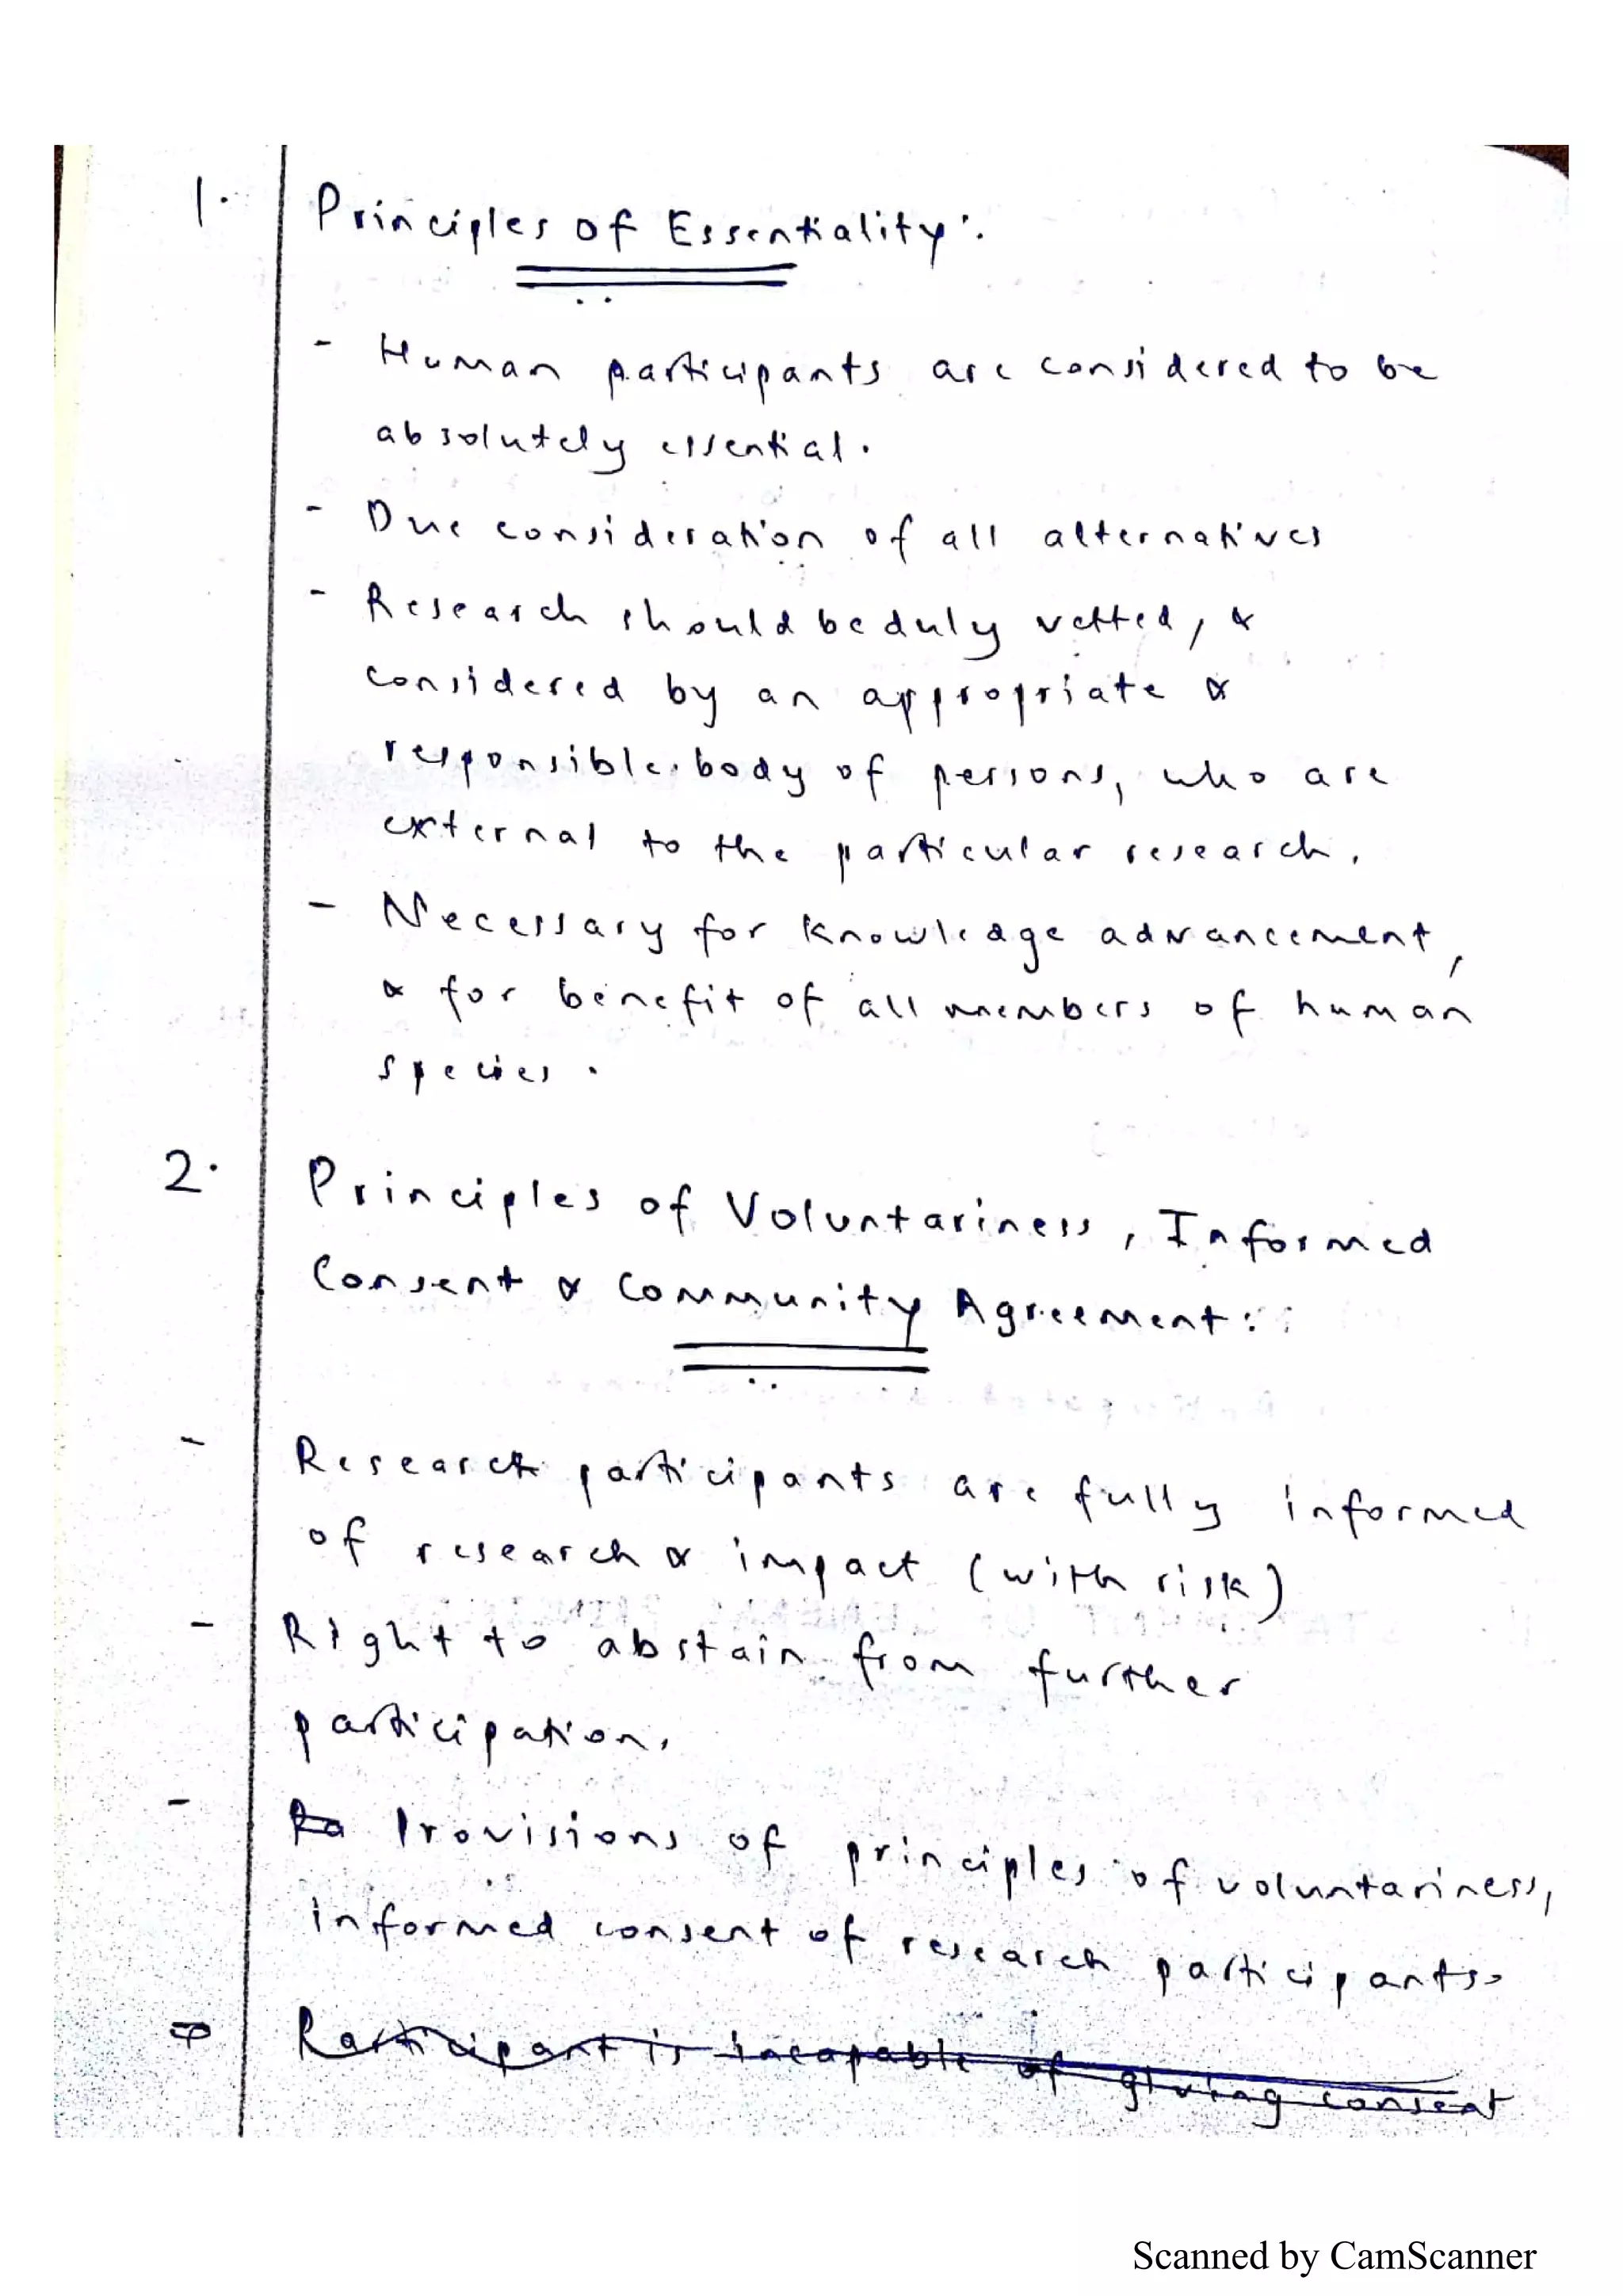 1. Principles of Essentiality:
- Human participants are considered to be
absolutely essential.
- Due consideration of all alternatives
- Research should be duly vetted, &
considered by an appropriate &
responsible body of persons, who are
external to the particular research.
- Necessary for knowledge advancement,
& for benefit of all members of human
species.
2. Principles of Voluntariness, Informed
Consent & Community Agreement:
- Research participants are fully informed
of research & impact (with risk)
- Right to abstain from further
participation.
- Ra Provisions of principles of voluntariness,
informed consent of research participants.
Participant is incapable of giving consent
Scanned by CamScanner